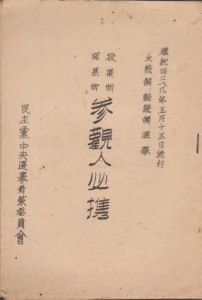 檀紀四二八九年五月十五日施行
大統領·副統領選擧
投票所
開票所
參觀人必携
民主黨中央選擧對策委員會